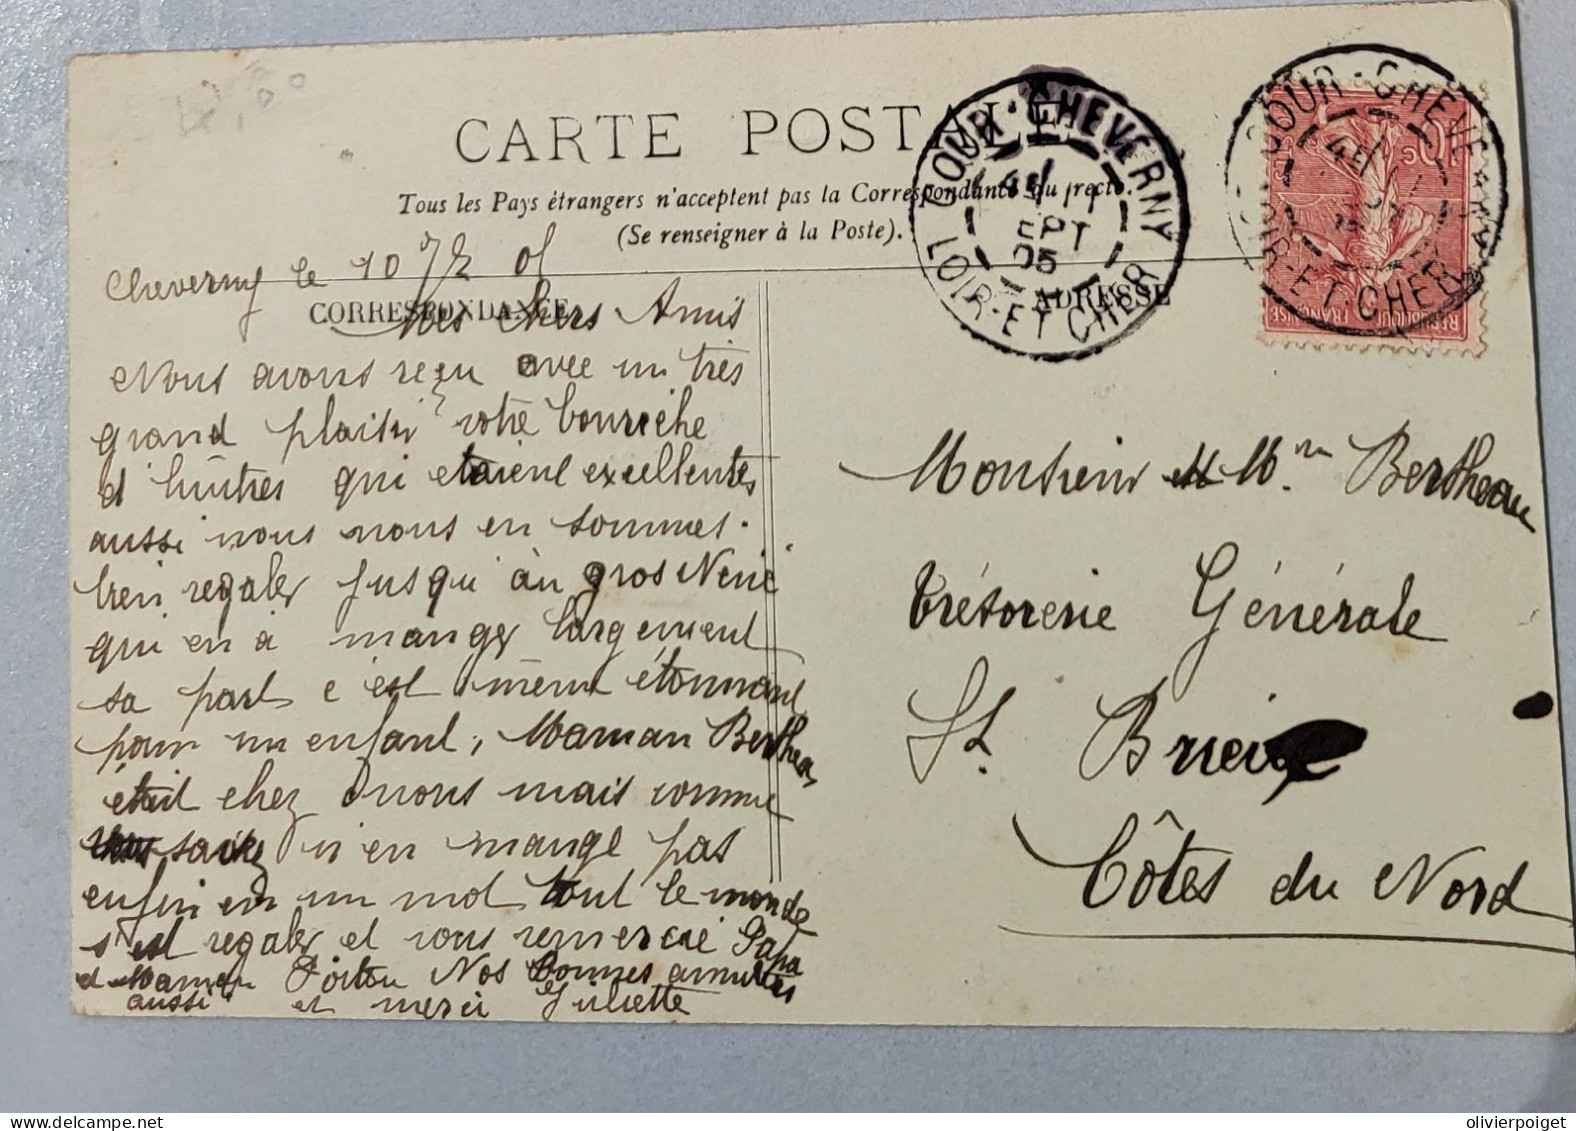 CARTE POSTALE
Tous les Pays étrangers n'acceptent pas la Correspondance au recto.
(Se renseigner à la Poste).
COUR-CHEVERNY
4E
SEPT
05
LOIR-ET-CHER
COUR-CHEVERNY
4E
LOIR-ET-CHER
10
REPUBLIQUE FRANÇAISE
Cheverny le 10
CORRESPONDANCE
ADRESSE
Mes chers Amis
Nous avons reçu avec un très
grand plaisir votre bourriche
d'huîtres qui etaient excellentes
aussi nous nous en sommes
bien regaler jusqu'au gros Néné
qui en à manger largement
sa part c'est même étonnant
pour un enfant, Maman Bertheau
était chez nous mais comme
vous savez n'en mange pas
enfin en un mot tout le monde
s'est regaler et vous remercie Papa
et Maman Poitou Nos bonnes amitiés
aussi et merci Juliette
Monsieur et Mme Bertheau
trésorerie Générale
St. Brieuc
Côtes du Nord
olivierpoiget